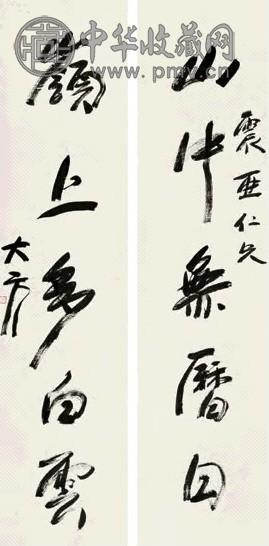 中华收藏网
震亞仁兄
山中無曆日
嶺上多白雲
大方